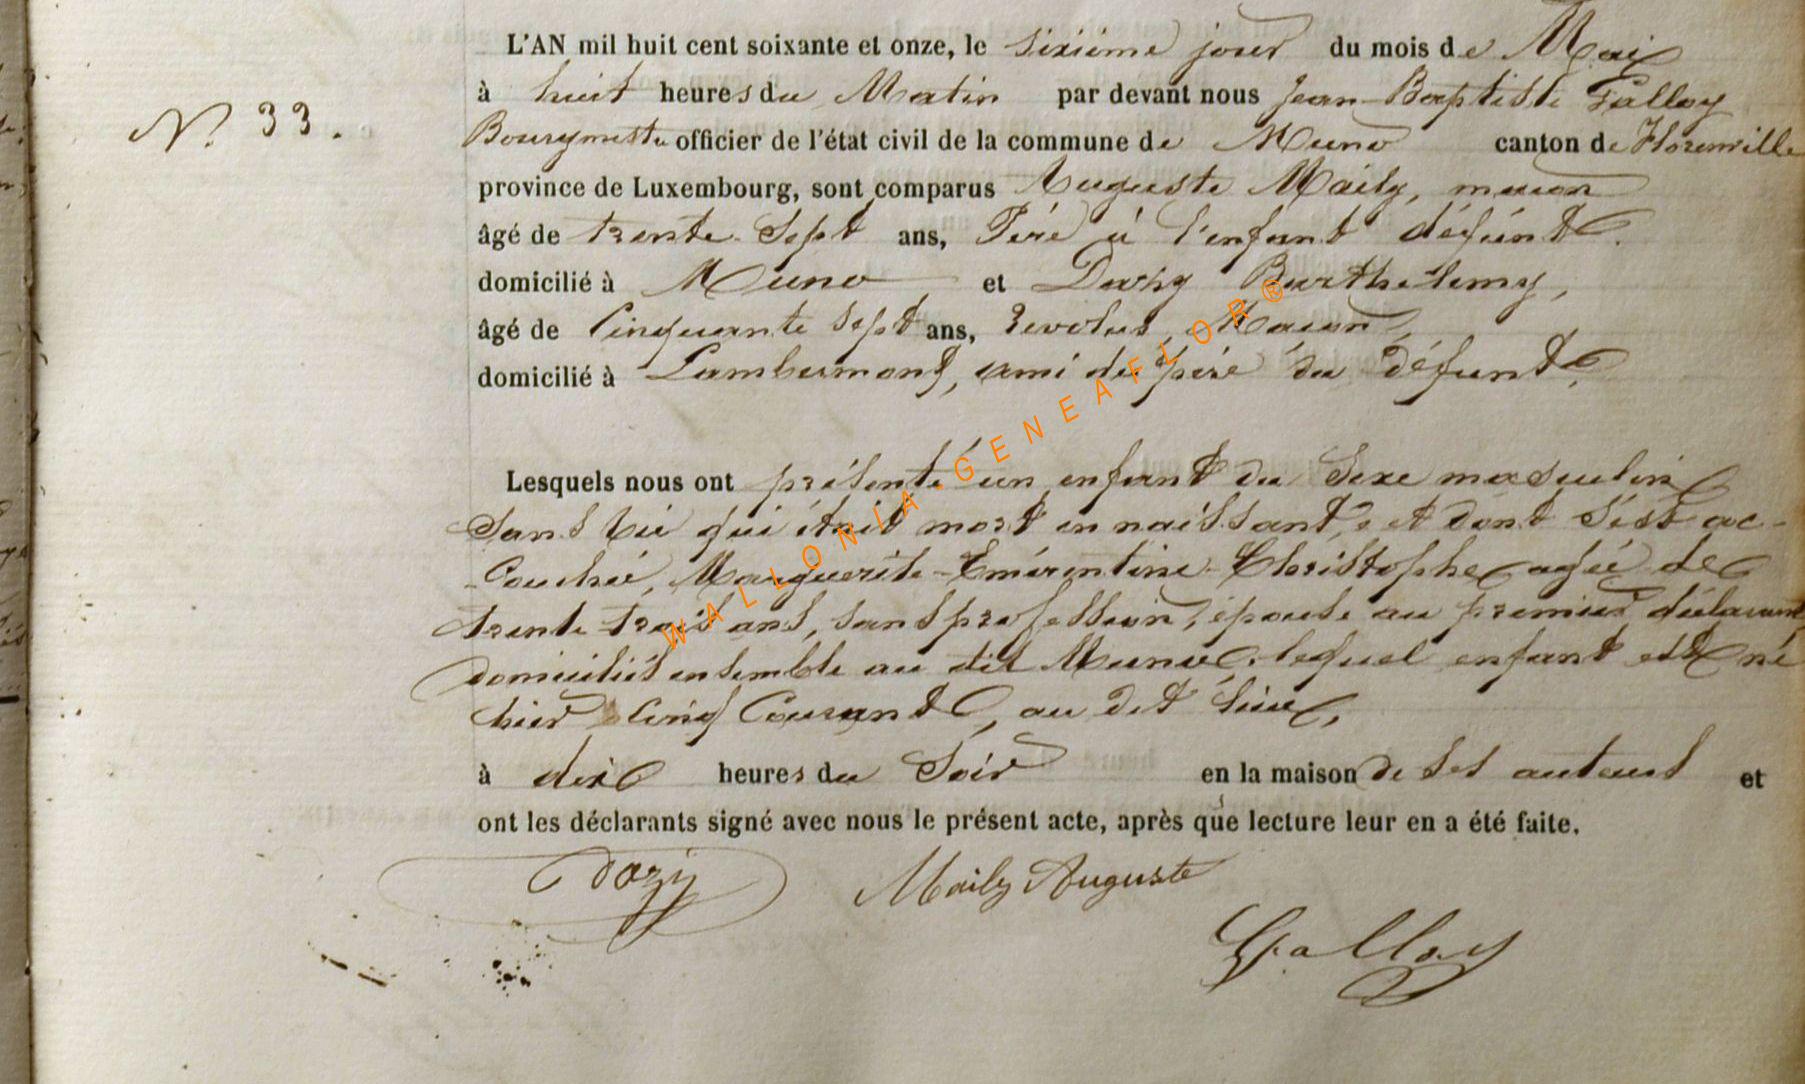 L'AN mil huit cent soixante et onze, le sixième jour du mois de Mai
N°. 33.
à huit heures du Matin par devant nous Jean-Baptiste Falloy
Bourgmestre officier de l'état civil de la commune de Muno canton de Florenville
province de Luxembourg, sont comparus Auguste Maily, maçon
âgé de trente-sept ans, Père à l'enfant défunt.
domicilié à Muno et Dozy Barthelemy,
âgé de Cinquante sept ans, revolus, Maçon,
domicilié à Lambermont, ami du père du défunt.
Lesquels nous ont présenté un enfant du Sexe masculin
Sans vie qui était mort en naissant, et dont s'est ac-
-Couchée, Marguerite-Émérentine-Christophe agée de
trente trois ans, sans profession, épouse au premier déclarant
domiciliés ensemble au dit Muno, lequel enfant est né
hier cinq Courant, au dit lieu,
à dix heures du Soir en la maison de ses auteurs et
ont les déclarants signé avec nous le présent acte, après que lecture leur en a été faite.
Dozy Maily Auguste
Falloy
WALLONIA-GENEAFLOR®